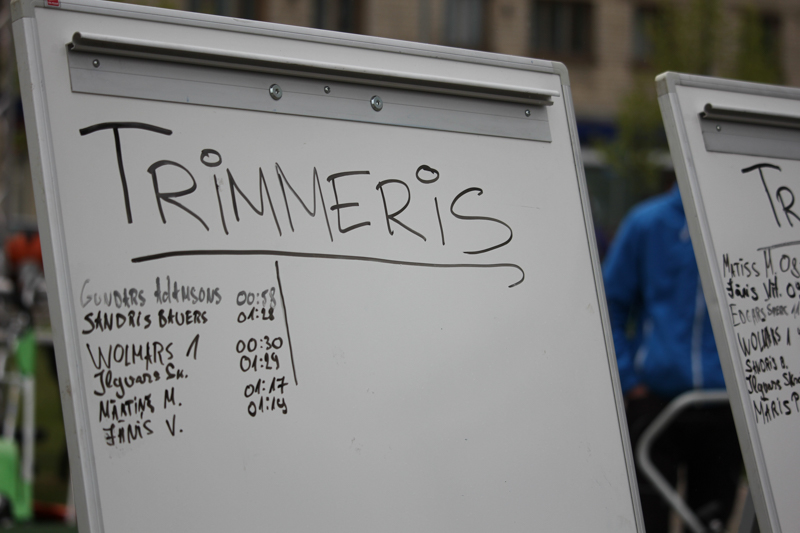 TRiMMERiS
GUNDARS ADAMSONS 00:58
SANDRIS BAUERS 01:28
WOLMARS 1 00:30
Ilgvars Sk. 01:29
MĀRTIŅŠ M. 01:17
JĀNIS V. 01:19
TR
MATĪSS M.
JĀNIS Vīt.
EDGARS
WOLMARS 1
SANDRIS B.
Ilgvars
MĀRIS P